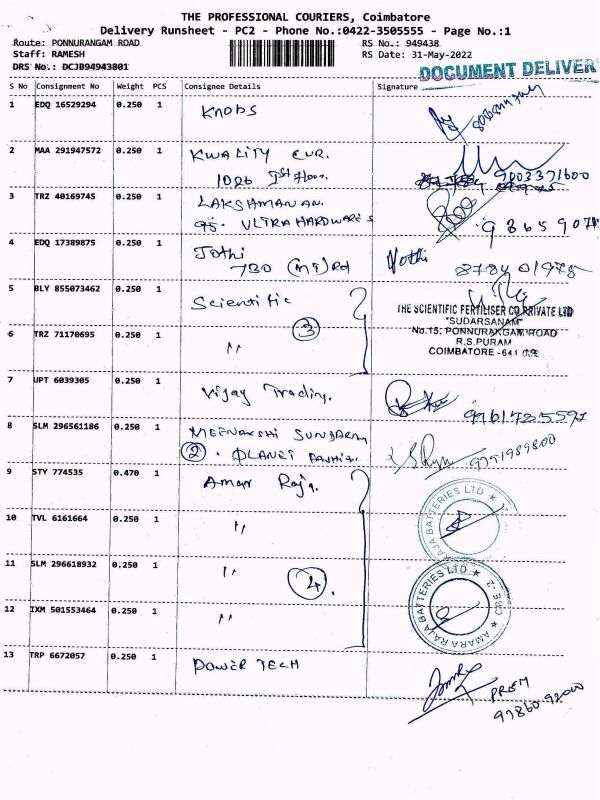 THE PROFESSIONAL COURIERS, Coimbatore
Delivery Runsheet - PC2 - Phone No.:0422-3505555 - Page No.:1
Route: PONNURANGAM ROAD RS No.: 949438
Staff: RAMESH RS Date: 31-May-2022
DRS No.: DCJB94943801
DOCUMENT DELIVER
S No Consignment No Weight PCS Consignee Details Signature
1 EDQ 16529294 0.250 1 Knobs
2 MAA 291947572 0.250 1 KWALITY EUR.
1026 Ist Floor. 9003371600
3 TRZ 40169745 0.250 1 LAKSHMANAN.
95. ULTRA HARDWARES
4 EDQ 17389875 0.250 1 Jothi Jothi
730 (MT) Rd
5 BLY 855073462 0.250 1 Scientific
THE SCIENTIFIC FERTILISER CO PRIVATE LTD
"SUDARSANAM"
No.15, PONNURANGAM ROAD
R.S.PURAM
COIMBATORE - 641
3
6 TRZ 71170695 0.250 1 "
7 UPT 6039305 0.250 1 Vijay Trading.
8 SLM 296561186 0.250 1 MEENAKSHI SUNDARM
2 . PLANET
9 STY 774535 0.470 1 Amar Raja.
BATTERIES LTD
10 TVL 6161664 0.250 1 "
11 SLM 296618932 0.250 1 "
4
AMARA RAJA BATTERIES LTD
12 IXM 501553464 0.250 1 "
13 TRP 6672057 0.250 1 POWER TECH
PREM